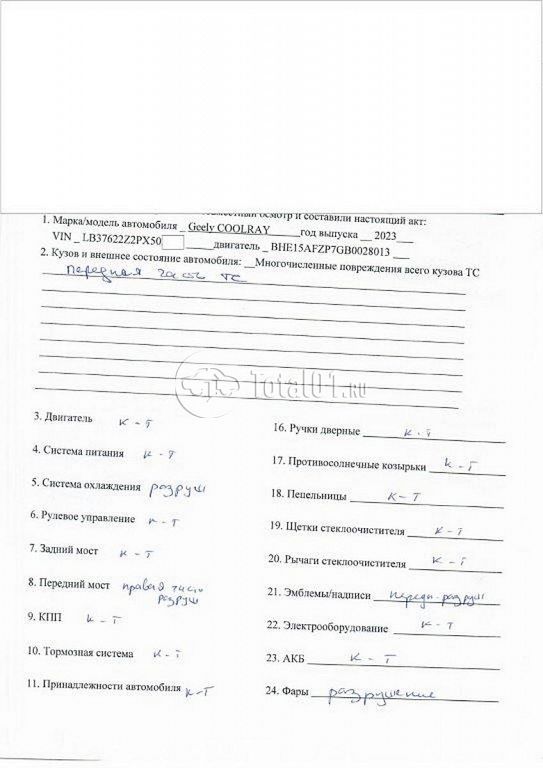 совместный осмотр и составили настоящий акт:
1. Марка/модель автомобиля _ Geely COOLRAY_____год выпуска __ 2023___
VIN _ LB37622Z2PX50 _____двигатель _ BHE15AFZP7GB0028013 ___
2. Кузов и внешнее состояние автомобиля: __Многочисленные повреждения всего кузова ТС
передняя часть ТС
Total01.ru
3. Двигатель к-т
4. Система питания к-т
5. Система охлаждения разруш
6. Рулевое управление к-т
7. Задний мост к-т
8. Передний мост правая часть
разруш
9. КПП к-т
10. Тормозная система к-т
11. Принадлежности автомобиля к-т
16. Ручки дверные к-т
17. Противосолнечные козырьки к-т
18. Пепельницы к-т
19. Щетки стеклоочистителя к-т
20. Рычаги стеклоочистителя к-т
21. Эмблемы/надписи передн-разруш
22. Электрооборудование к-т
23. АКБ к-т
24. Фары разрушение